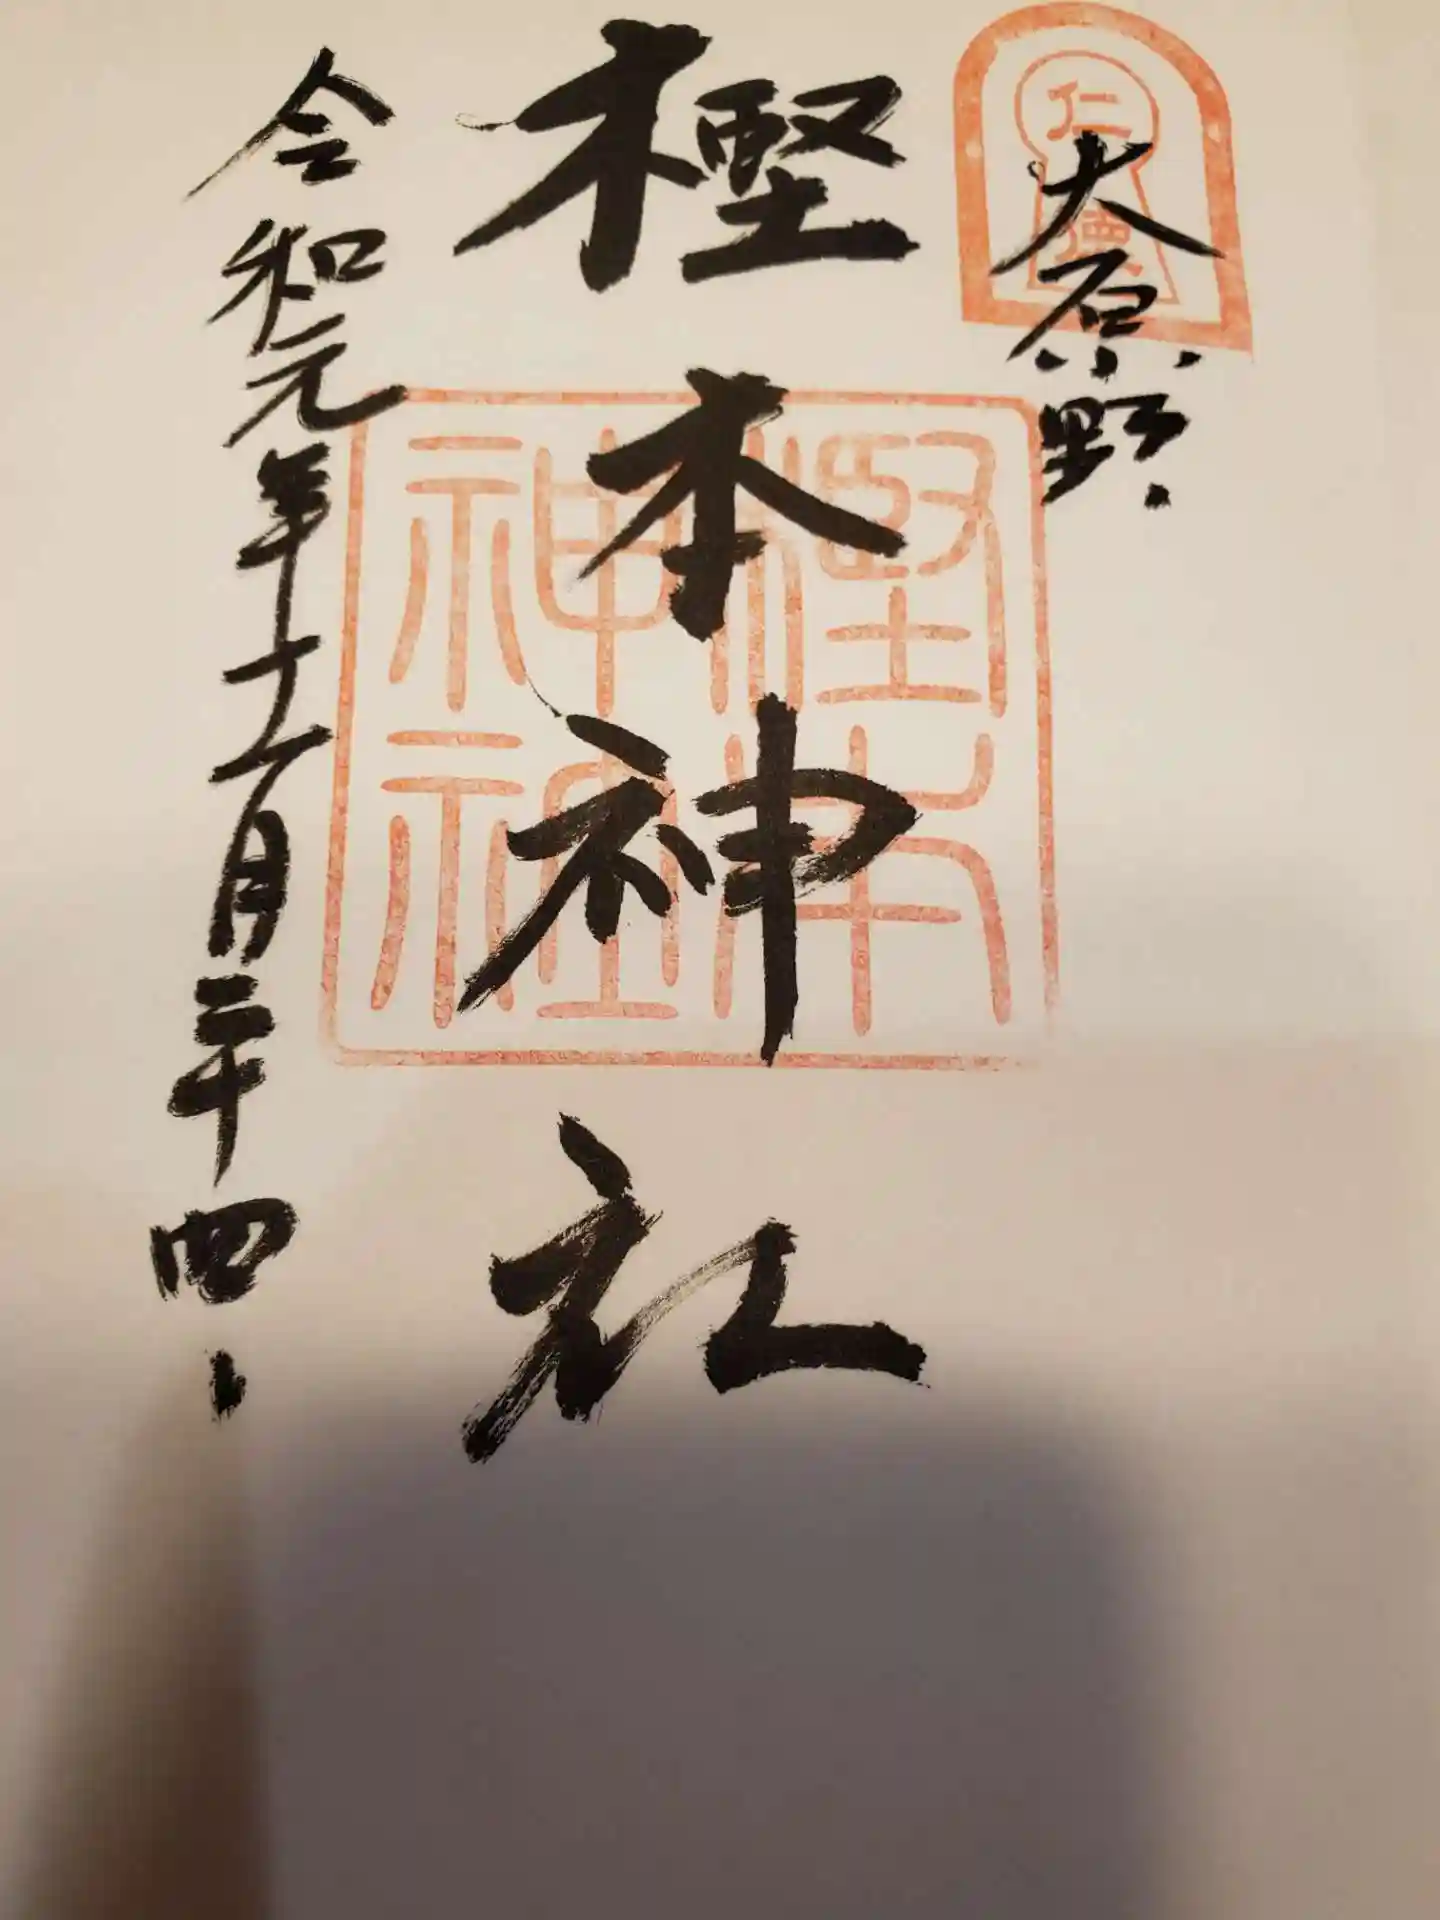 仁徳
大原野
樫本神社
樫本神社
令和元年十一月二十四日